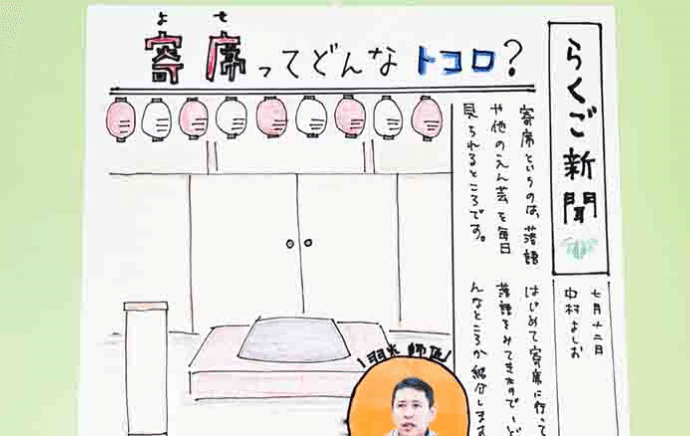 らくご新聞
七月十二日
中村よしお
よせ
寄席ってどんなトコロ？
寄席というのは、落語
や他のえん芸を毎日
見られるところです。
はじめて寄席に行って
落語をみてきたので、ど
んなところか紹介します